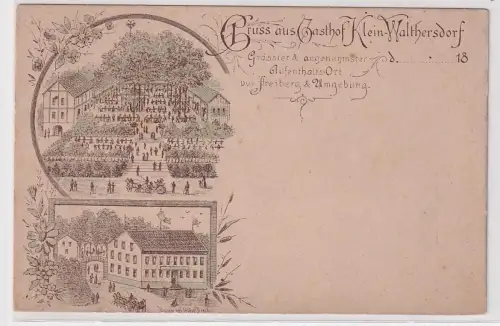 Gruss aus Gasthof Klein-Walthersdorf
Grösster & angenehmster d. 18
Aufenthalts-Ort
von Freiberg & Umgebung.